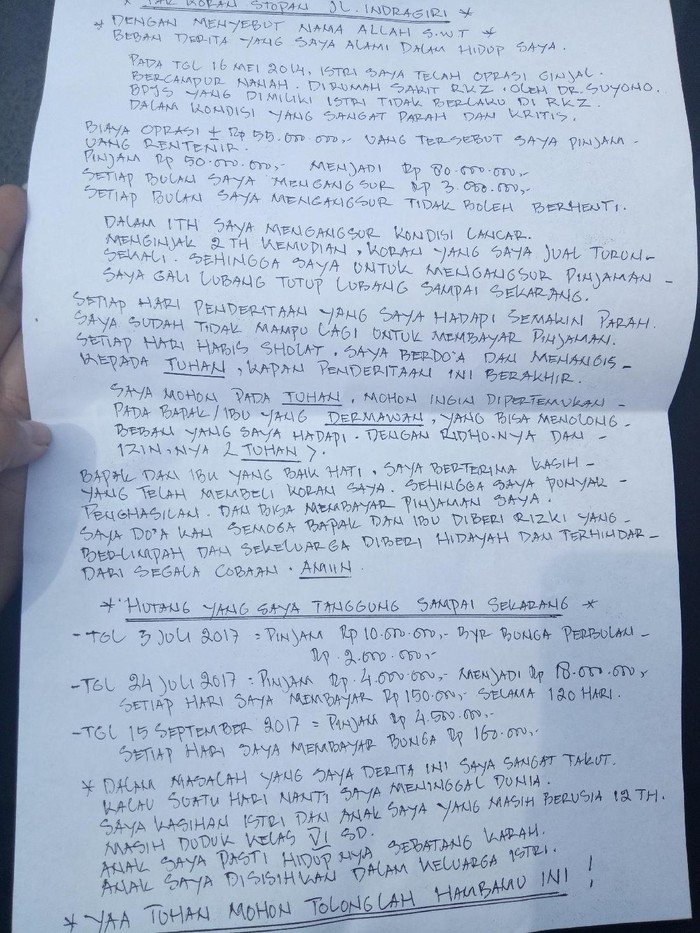 * TAR KORAN STOPAN JL. INDRAGIRI *
* DENGAN MENYEBUT NAMA ALLAH S.W.T *
BEBAN DERITA YANG SAYA ALAMI DALAM HIDUP SAYA.
PADA TGL 16 MEI 2014, ISTRI SAYA TELAH OPRASI GINJAL.
BERCAMPUR NANAH. DIRUMAH SAKIT RKZ. OLEH DR. SUYONO.
BPJS YANG DIMILIKI ISTRI TIDAK BERLAKU DI RKZ.
DALAM KONDISI YANG SANGAT PARAH DAN KRITIS.
BIAYA OPRASI ± Rp 55.000.000,- UANG TERSEBUT SAYA PINJAM -
UANG RENTENIR.
PINJAM Rp 50.000.000,- MENJADI Rp 80.000.000,-
SETIAP BULAN SAYA MENGANGSUR Rp 3.000.000,-
SETIAP BULAN SAYA MENGANGSUR TIDAK BOLEH BERHENTI.
DALAM 1TH SAYA MENGANGSUR KONDISI LANCAR.
MENGINJAK 2 TH KEMUDIAN, KORAN YANG SAYA JUAL TURUN -
SEKALI. SEHINGGA SAYA UNTUK MENGANGSUR PINJAMAN -
SAYA GALI LUBANG TUTUP LUBANG SAMPAI SEKARANG.
SETIAP HARI PENDERITAAN YANG SAYA HADAPI SEMAKIN PARAH.
SAYA SUDAH TIDAK MAMPU LAGI UNTUK MEMBAYAR PINJAMAN.
SETIAP HARI HABIS SHOLAT. SAYA BERDO'A DAN MENANGIS -
KEPADA TUHAN, KAPAN PENDERITAAN INI BERAKHIR.
SAYA MOHON PADA TUHAN, MOHON INGIN DIPERTEMUKAN -
PADA BAPAK/IBU YANG DERMAWAN, YANG BISA MENOLONG -
BEBAN YANG SAYA HADAPI. DENGAN RIDHO.NYA DAN -
IZIN.NYA < TUHAN >.
BAPAK DAN IBU YANG BAIK HATI. SAYA BERTERIMA KASIH -
YANG TELAH MEMBELI KORAN SAYA. SEHINGGA SAYA PUNYAK -
PENGHASILAN. DAN BISA MEMBAYAR PINJAMAN SAYA.
SAYA DO'A KAN SEMOGA BAPAK DAN IBU DIBERI RIZKI YANG -
BERLIMPAH DAN SEKELUARGA DIBERI HIDAYAH DAN TERHINDAR -
DARI SEGALA COBAAN. AMIIN
* HUTANG YANG SAYA TANGGUNG SAMPAI SEKARANG *
- TGL 3 JULI 2017 = PINJAM Rp 10.000.000,- BYR BUNGA PERBULAN -
Rp. 2.000.000,-
- TGL 24 JULI 2017 = PINJAM Rp. 4.000.000,- MENJADI Rp 18.000.000,-
SETIAP HARI SAYA MEMBAYAR Rp 150.000,- SELAMA 120 HARI.
- TGL 15 SEPTEMBER 2017 = PINJAM Rp 4.500.000,-
SETIAP HARI SAYA MEMBAYAR BUNGA Rp 160.000,-
* DALAM MASALAH YANG SAYA DERITA INI SAYA SANGAT TAKUT.
KALAU SUATU HARI NANTI SAYA MENINGGAL DUNIA.
SAYA KASIHAN ISTRI DAN ANAK SAYA YANG MASIH BERUSIA 12 TH.
MASIH DUDUK KELAS VI SD.
ANAK SAYA PASTI HIDUP NYA SEBATANG KARAH.
ANAK SAYA DISISIHKAN DALAM KELUARGA ISTRI.
* YAA TUHAN MOHON TOLONGLAH HAMBAMU INI !